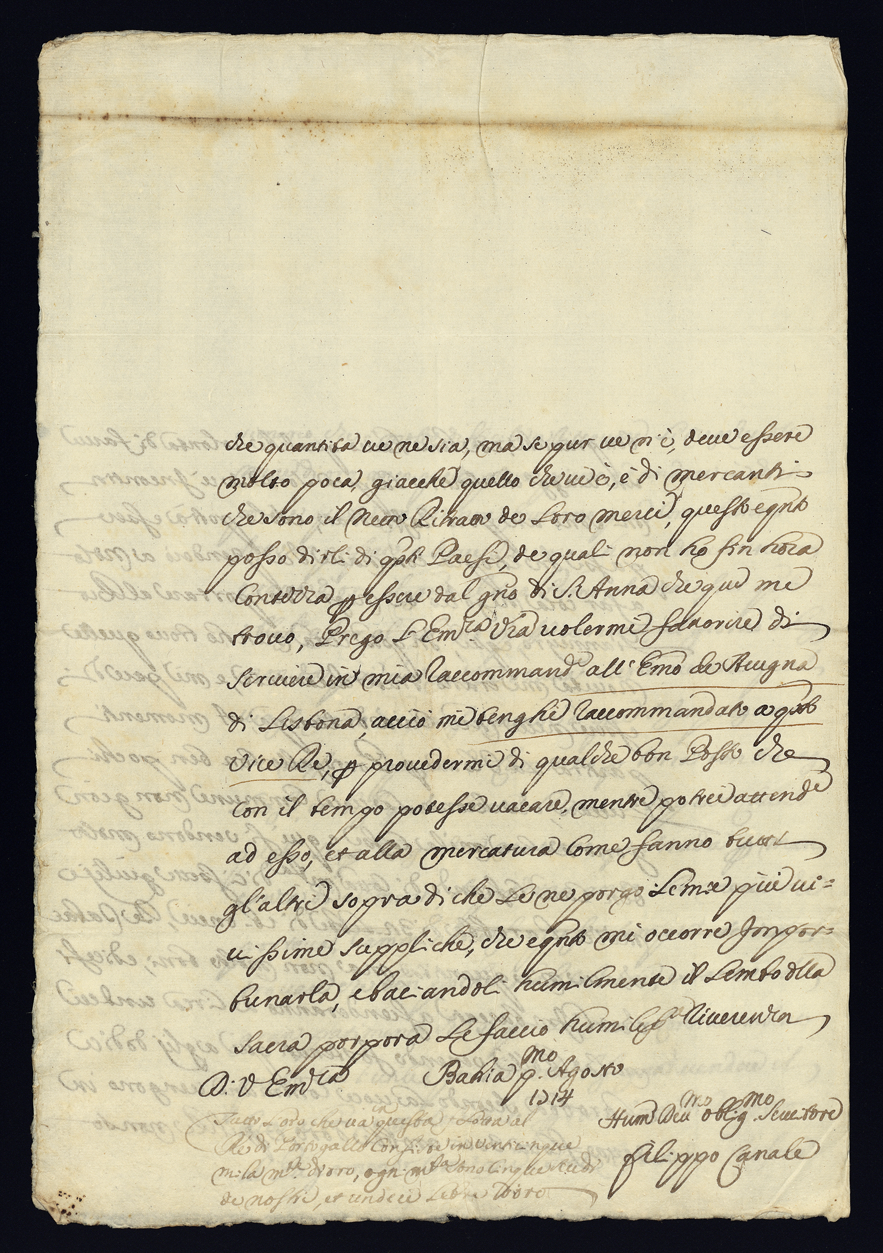 che quantità ue ne sia, ma se pur ue n'è, deue essere
molto poca, giacchè quello che ui è, è di mercanti
che sono il Ritratto de Loro merci, questo è q.nto
posso dirli di q.sti Paesi, de quali non ho sin hora
Contezza p essere dal g.no di S. Anna che qui me
trouo, Prego L'Em.za V.ra uolermi fauorire di
scriuere in mia raccommand.e all' Emo de Acugna
di Lisbona, acciò mi tenghi raccommandato a q.sto
Vice Re, p prouedermi di qualche bon Posto che
con il tempo potesse uacare, mentre potrei attende
ad esso, et alla mercatura come fanno tutti
gl'altri sopra di che Le ne porgo Le mie più ui=
uissime suppliche, che è q.nto mi occorre Impor=
tunarla, e baciandoli humilmente il Lembo della
Sacra porpora Le faccio humiliss.a riuerenza
D: V Em.za Bahia p.mo Agosto
1714
Hum.o Deu.mo Oblig.mo Seruitore
Filippo Canale
L'oro che ua in questa flotta al
Rè di Portogallo Consiste in Venticinque
mila m.te d'oro, ogni m.ta sono Cinque scudi
de nostri, et undeci Libre d'oro